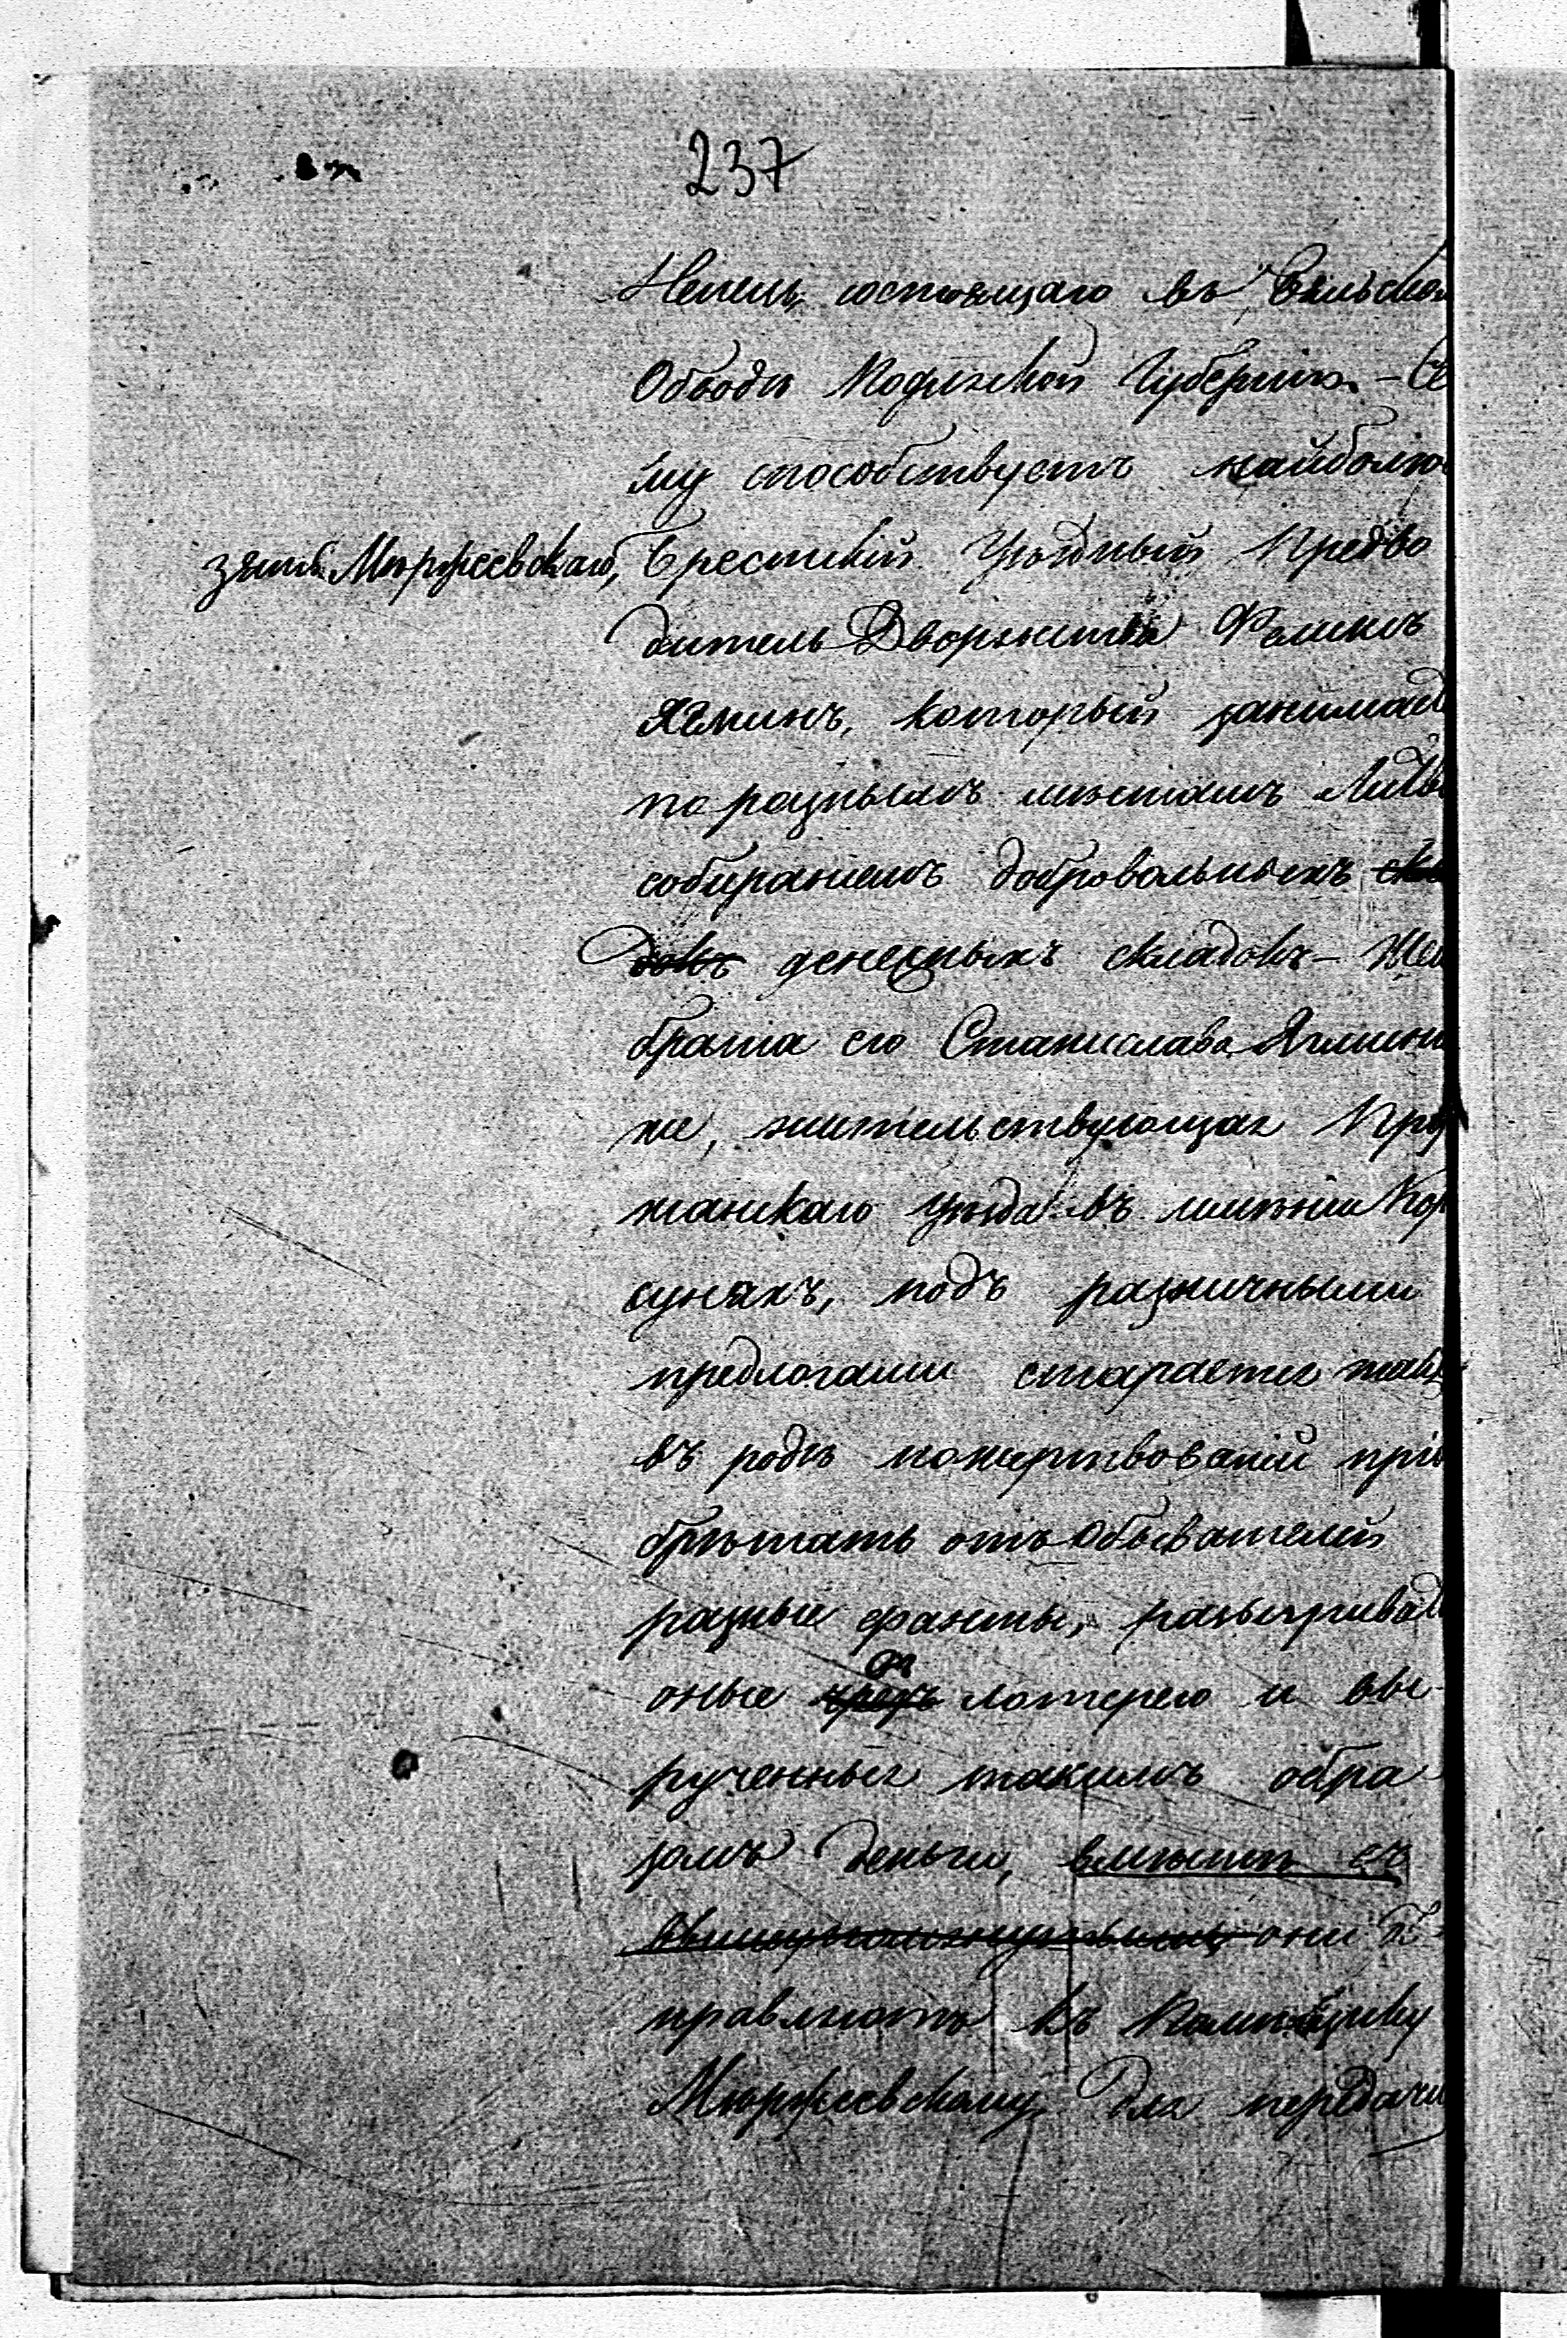 237
Непець, состоящаго въ Бѣльском
Обводѣ Подляской Губерніи. – Се
му способствуетъ наиболѣе
зять Мюржеевскаго, Брестскій Уѣздный Предво
дитель Дворянства Феликсъ
Ягминъ, который занимает
по разнымъ мѣстамъ Литвы
собираніемъ добровольныхъ скла
докъ денежныхъ складокъ – Жен
брата его Станислава Ягмина
же, жительствующая Пру
жанскаго Уѣзда въ имѣніи Кор
суняхъ, подъ различными
предлогами старается также
въ родѣ пожертвованій прі
обрѣтать отъ Обывателей
разные фанты, разыгрывает
оные чрезъ лотерею и вы
рученныя такимъ обра
зомъ деньги, вмѣстѣ съ
они
правляютъ къ Помѣщику
Мюржеевскому для передачи